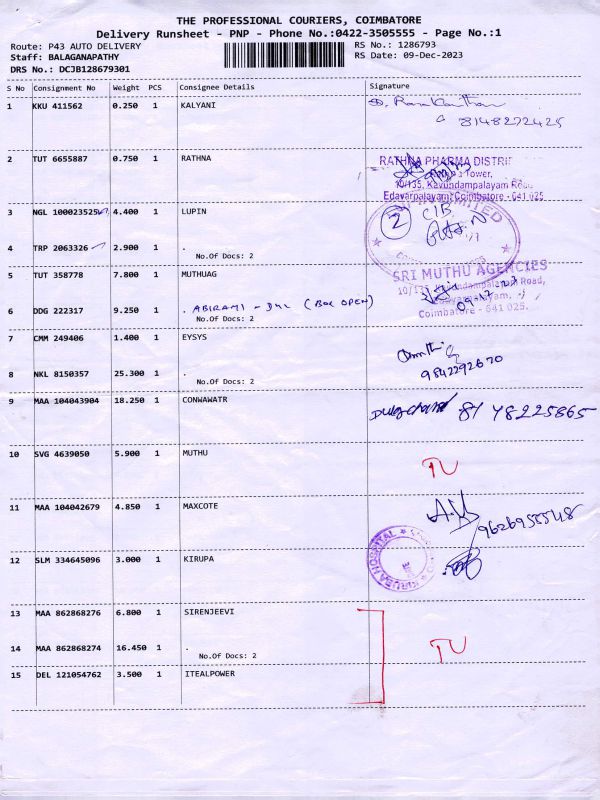 THE PROFESSIONAL COURIERS, COIMBATORE
Delivery Runsheet - PNP - Phone No.:0422-3505555 - Page No.:1
Route: P43 AUTO DELIVERY RS No.: 1286793
Staff: BALAGANAPATHY RS Date: 09-Dec-2023
DRS No.: DCJB128679301
S No Consignment No Weight PCS Consignee Details Signature
1 KKU 411562 0.250 1 KALYANI
8148272425
2 TUT 6655887 0.750 1 RATHNA RATHNA PHARMA DISTRI
Tower,
10/135, Kavundampalayam Road
Edayarpalayam, Coimbatore - 641 025
3 NGL 100023525 4.400 1 LUPIN 2 CIB
4 TRP 2063326 2.900 1 .
No.Of Docs: 2
5 TUT 358778 7.800 1 MUTHUAG SRI MUTHU AGENCIES
10/13 Kavundampalayam Road,
6 DDG 222317 9.250 1 . ABIRAMI - DHL (BOX OPEN)
No.Of Docs: 2 Coimbatore - 641 025.
7 CMM 249406 1.400 1 EYSYS
9842292670
8 NKL 8150357 25.300 1 .
No.Of Docs: 2
9 MAA 104043904 18.250 1 CONWAWATR 81 48225865
10 SVG 4639050 5.900 1 MUTHU TU
11 MAA 104042679 4.850 1 MAXCOTE
12 SLM 334645096 3.000 1 KIRUPA KIRUBA HOSPITAL
13 MAA 862868276 6.800 1 SIRENJEEVI
14 MAA 862868274 16.450 1 . TU
No.Of Docs: 2
15 DEL 121054762 3.500 1 ITEALPOWER